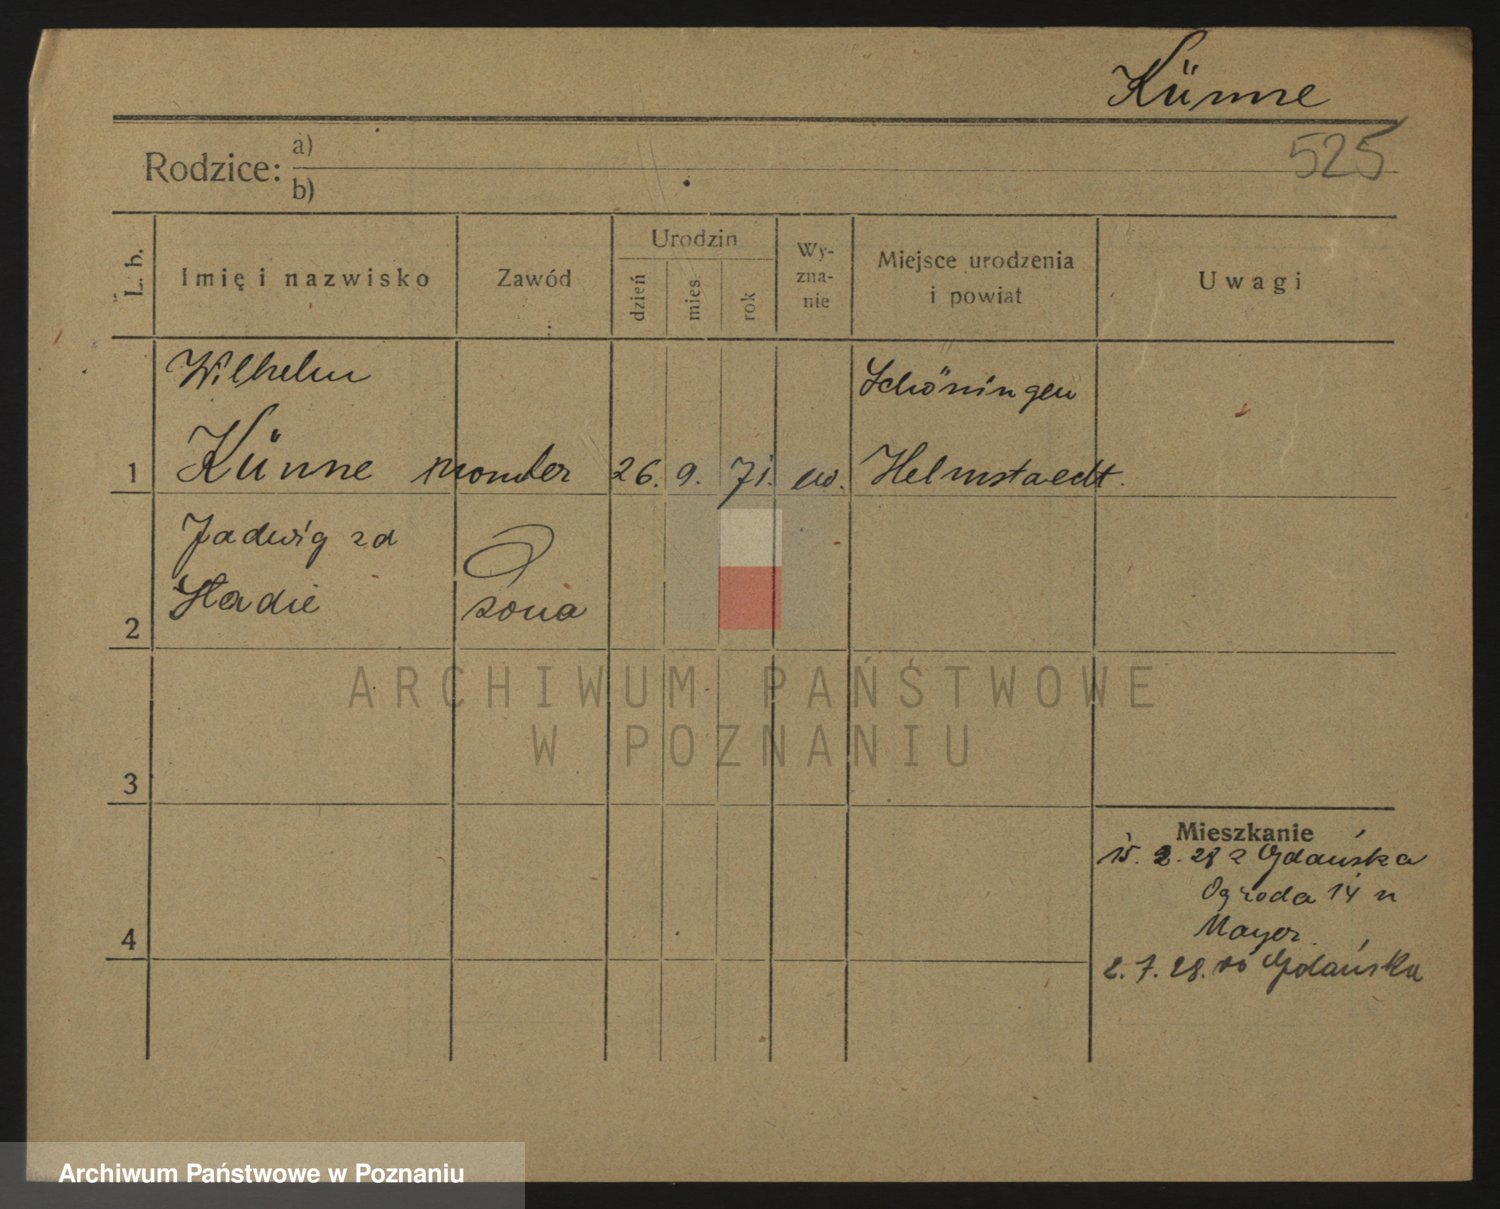 Künne
525
Rodzice: a)
b)
L. b.
Imię i nazwisko
Zawód
Urodzin
dzień
mies.
rok
Wy-
zna-
nie
Miejsce urodzenia
i powiat
Uwagi
Wilhelm
Schöningen
1 Künne monter 26. 9. 71. ew. Helmstaedt.
Jadwiga zd
2 żona
3
4
Mieszkanie
15. 2. 28 z Gdańska
Ogroda 14 u
Mayer
2. 7. 28. do Gdańska
ARCHIWUM PAŃSTWOWE
W POZNANIU
Archiwum Państwowe w Poznaniu